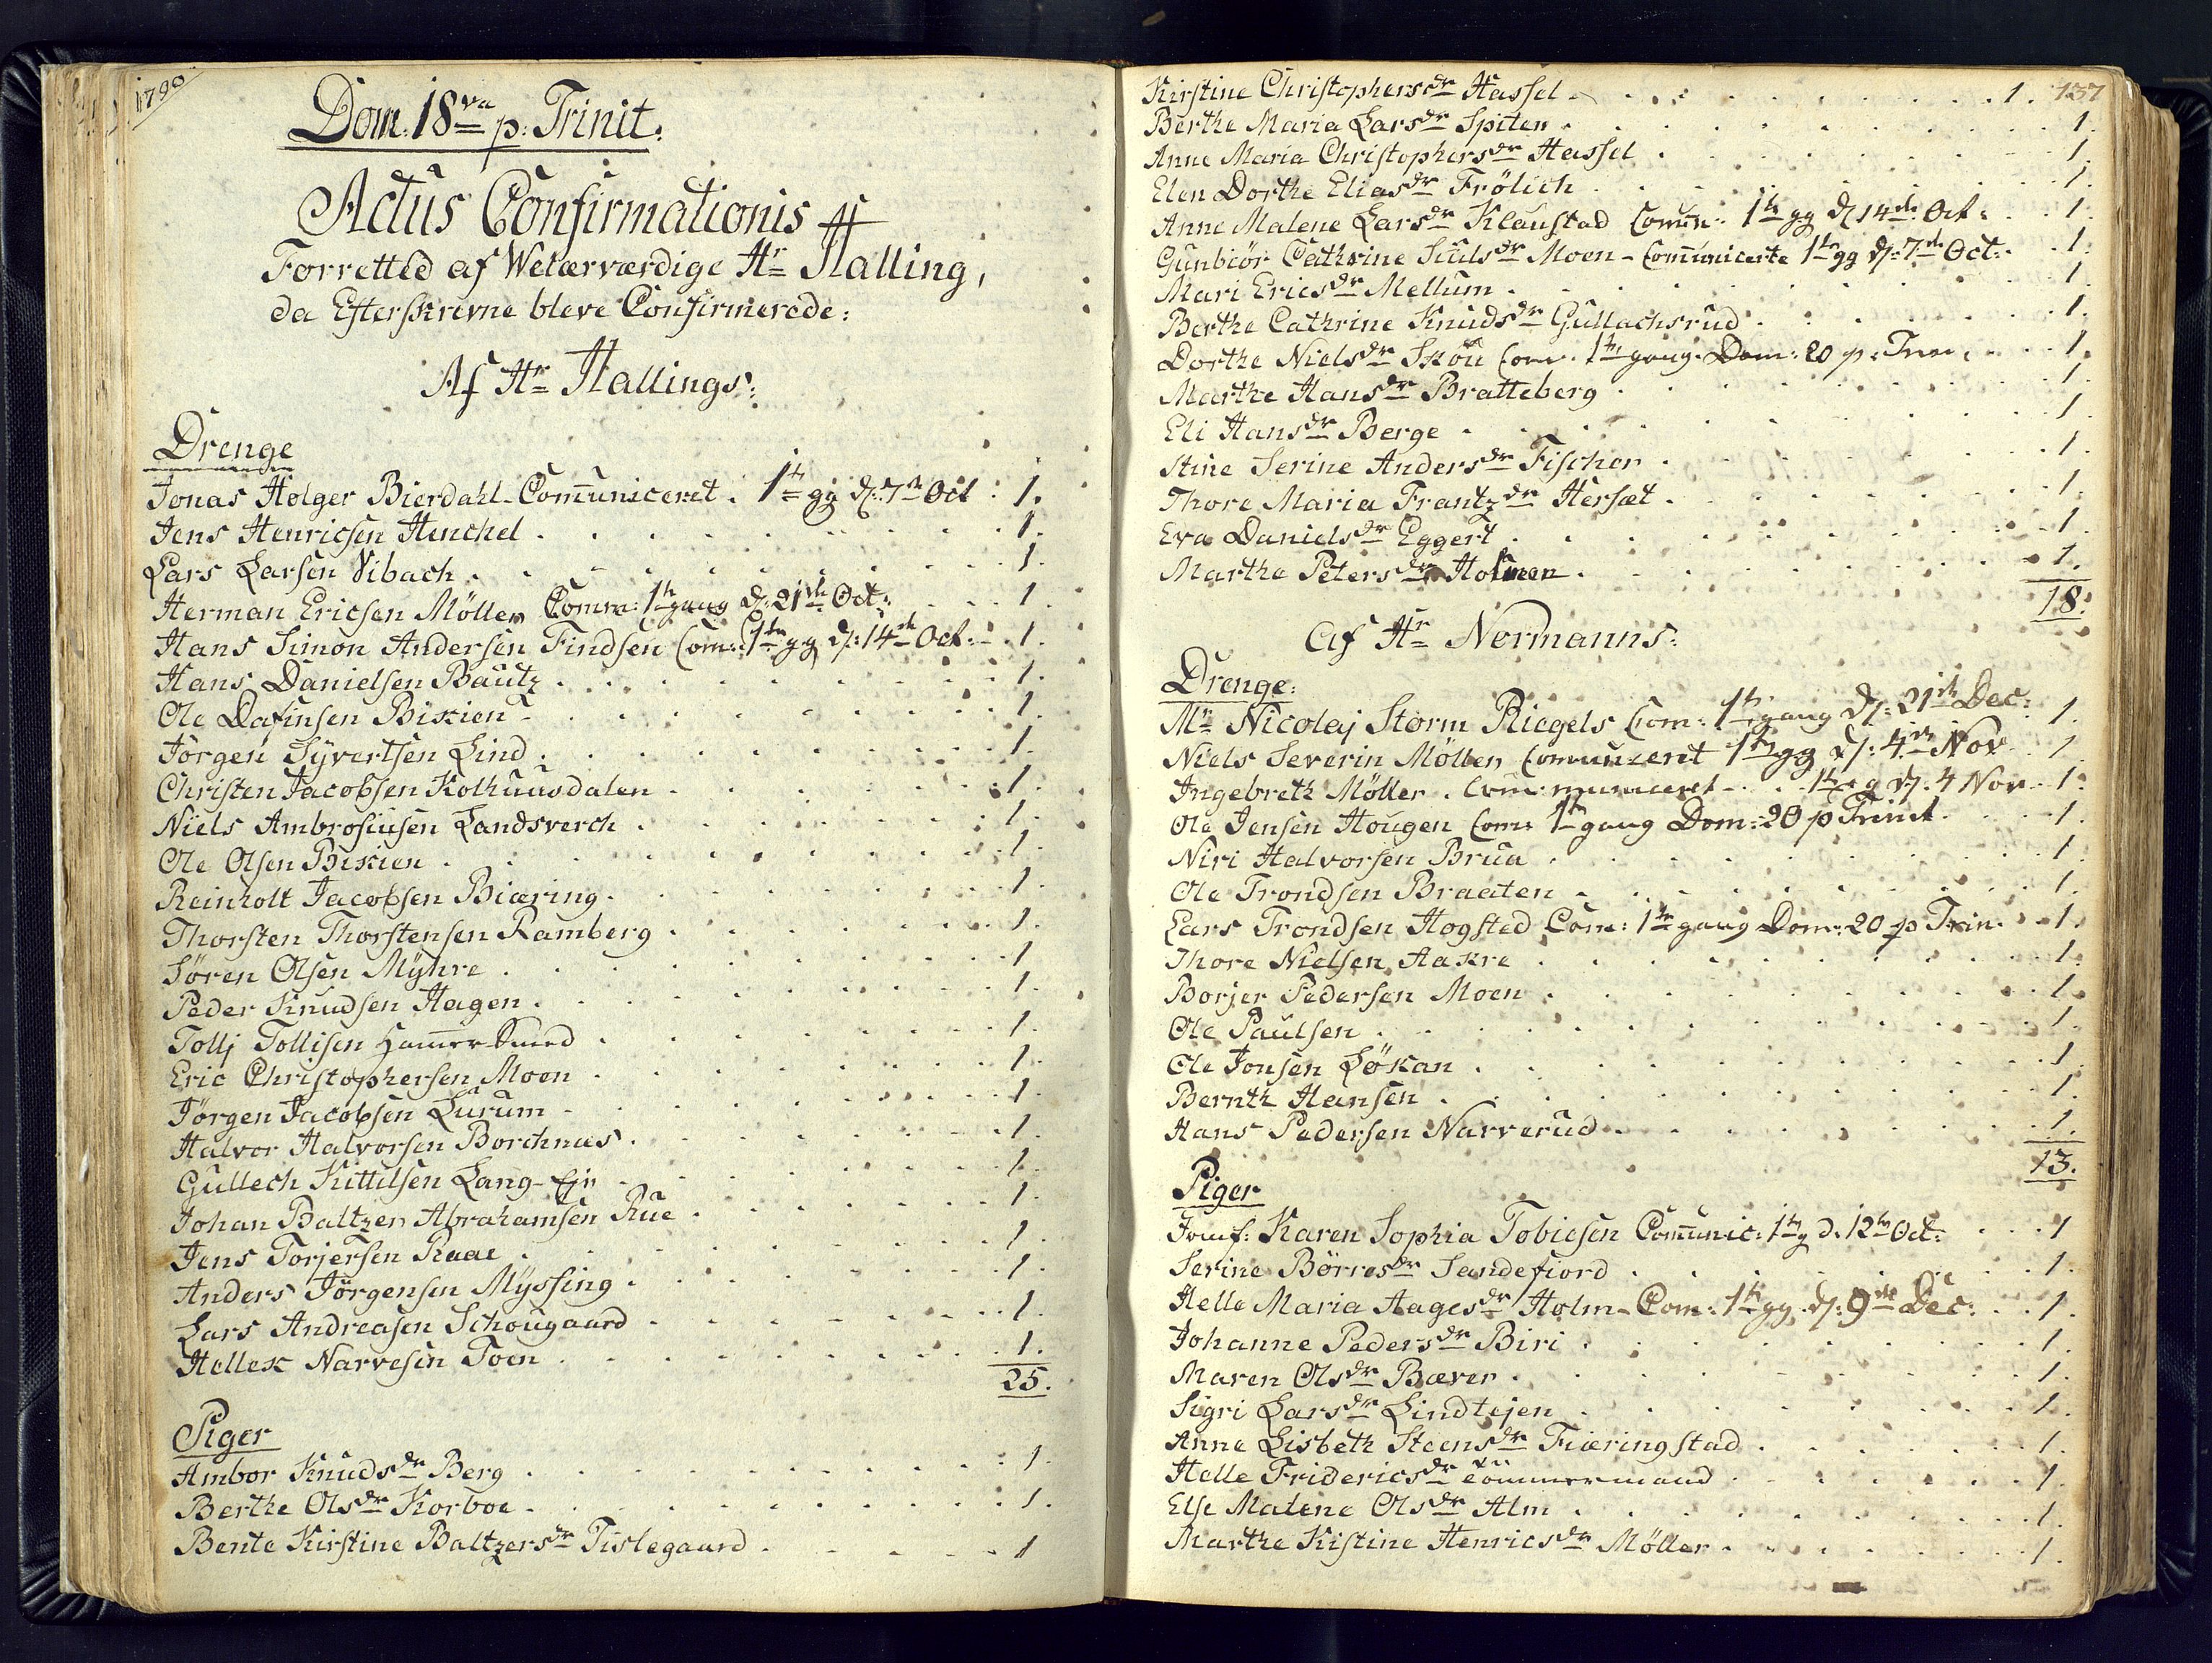 1790
Dom: 18va p: Trinit:
Actus Confirmationis
Forretted af Welærværdige Hr Halling,
da Efterskrevne bleve Confirmerede:
Af Hr Hallings:
Drenge
Jonas Holger Bierdahl - Com̅uniceret. 1te gg d: 7de Oct: 1.
Jens Henricsen Henchel 1.
Lars Larsen Vibach 1.
Herman Ericsen Möller Comm: 1te gang d: 21de Oct: 1.
Hans Simon Andersen Findsen Com: 1te gg d: 14de Oct: 1.
Hans Danielsen Bautz 1.
Ole Dafinsen Biskien 1.
Jörgen Syvertsen Lind 1.
Christen Jacobsen Kolhuusdalen 1.
Niels Ambrosiusen Landsverch 1.
Ole Olsen Biskien 1.
Reinholt Jacobsen Biæring 1.
Thorsten Thorstensen Ramberg 1.
Sören Olsen Myhre 1.
Peder Knudsen Hagen 1.
Tollj Tollisen Ham̅er Smed 1.
Eric Christophersen Moen 1.
Jörgen Jacobsen Lurum 1.
Halvor Halvorsen Borchnæs 1.
Gullech Kittilsen Lang-Eje 1.
Johan Baltzer Abrahamsen Rue 1.
Jens Torjersen Raae 1.
Anders Jörgensen Myssing 1.
Lars Andreasen Schougaard 1.
Hellek Narvesen Toen 1.
25.
Piger
Ambor Knudsdr Berg 1.
Berthe Olsdr Korboe 1.
Bente Kirstine Baltzersdr Tislegaard 1
137
Kirstine Christophersdr Hassel 1.
Berthe Maria Larsdr Spiten 1.
Anne Maria Christophersdr Hassel 1.
Elen Dorthe Eliasdr Frölich 1.
Anne Malene Larsdr Klaustad Comm: 1te gg d 14de Oct: 1.
Gunbiör Cathrine Juulsdr Moen - Com̅unicerte 1te gg d: 7de Oct: 1.
Mari Ericsdr Mellum 1.
Berthe Cathrine Knudsdr Gullachsrud 1.
Dorthe Nielsdr Skou Com: 1te gang Dom: 20 p: Trin: 1.
Marthe Hansdr Bratteberg 1.
Eli Hansdr Berge 1.
Stine Serine Andersdr Fischer 1.
Thore Maria Frantzdr Hersæt 1.
Eva Danielsdr Eggert 1.
Marthe Petersdr Holmen 1.
18.
Af Hr Normanns:
Drenge:
Mr Nicolaj Storm Riegels Com: 1te gang d: 21de Dec: 1.
Niels Severin Möller Communicert 1te gg d: 4de Nov 1.
Ingebreth Möller. Communiceret 1te g d: 4 Nov 1.
Ole Jensen Hougen Com: 1te gang Dom: 20 p Trinit 1.
Niri Halvorsen Brua 1.
Ole Trondsen Braaten 1.
Lars Trondsen Hogsted Com: 1te gang Dom: 20 p Trin 1.
Thore Nielsen Aakre 1.
Borjer Pedersen Moen 1.
Ole Paulsen 1.
Ole Jonsen Lökan 1.
Bernth Hansen 1.
Hans Pedersen Narverud 1.
13.
Piger
Jomf: Karen Sophia Tobiesen Com̅unic: 1te g d. 12te Oct: 1
Serine Börresdr Sandefiord 1.
Helle Maria Aagesdr Holm - Com: 1te gg. d: 9de Dec: 1.
Johanne Pedersdr Biri 1.
Maren Olsdr Bæver 1.
Sigri Larsdr Lindtejen 1.
Anne Lisbeth Steensdr Fiæringstad 1.
Helle Fridericsdr Tömmermand 1.
Else Malene Olsdr Alm 1.
Marthe Kistine Henricsdr Möller 1.